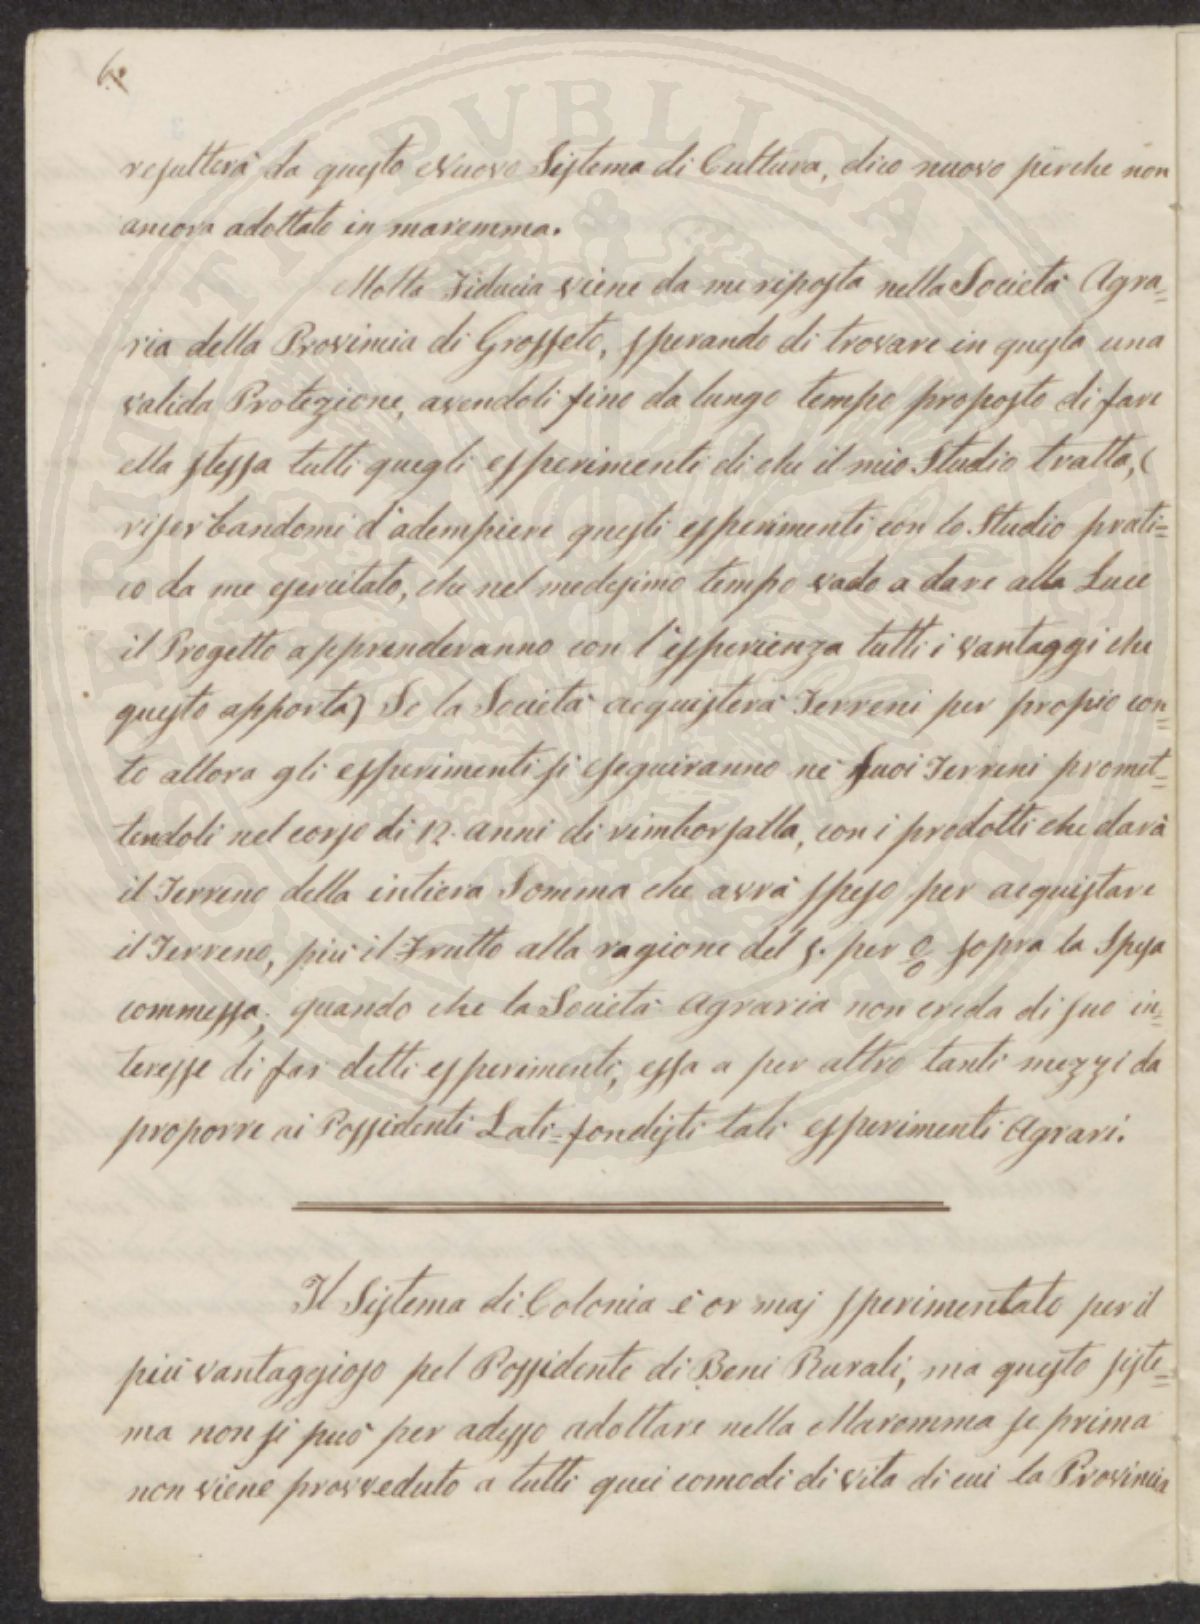 6.
resulterà da questo Nuovo Sistema di Cultura, dico nuovo perche non
ancora adottato in maremma.
Molta Fiducia viene da me riposta nella Società Agra=
ria della Provincia di Grosseto, sperando di trovare in questa una
valida Protezione, avendoli fino da lungo tempo proposto di fare
ella stessa tutti quegli esperimenti di che il mio Studio tratta, (
riserbandomi d'adempiere questi esperimenti con lo Studio prati=
co da me esercitato, che nel medesimo tempo vado a dare alla Luce
il Progetto apprenderanno con l'esperienza tutti i vantaggi che
questo apporta) Se la Società acquisterà Terreni per propio con=
to allora gli esperimenti si eseguiranno ne suoi Terreni promet=
tendoli nel corso di 12. anni di rimborsalla, con i prodotti che darà
il Terreno della intiera Somma che avrà speso per acquistare
il Terreno, più il Frutto alla ragione del 5. per % sopra la Spesa
commessa; quando che la Società Agraria non creda di suo in=
teresse di far detti esperimenti, essa a per altro tanti mezzi da
proporre ai Possidenti Lati=fondisti tali esperimenti Agrari.
Il Sistema di Colonia è or maj sperimentato per il
più vantaggioso pel Possidente di Beni Rurali, ma questo siste=
ma non si può per adesso adottare nella Maremma se prima
non viene provveduto a tutti quei comodi di vita di cui la Provincia